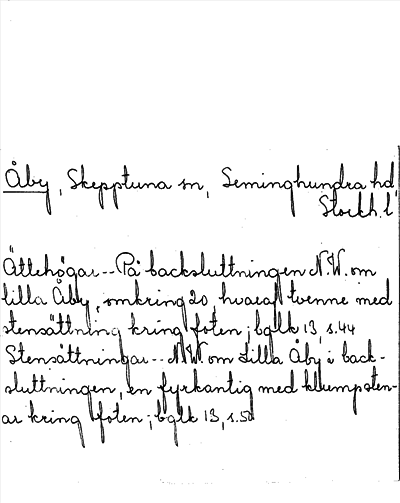 Åby, Skepptuna sn, Seminghundra hd,
Stockh. l
Ättehögar -- På backsluttningen N.W. om
lilla Åby, omkring 20 hvaraf tvenne med
stensättning kring foten; bglk 13, s. 44
Stensättningar -- N.W. om Lilla Åby i back-
sluttningen, en fyrkantig med klumpsten-
ar kring foten; bglk 13, s. 50